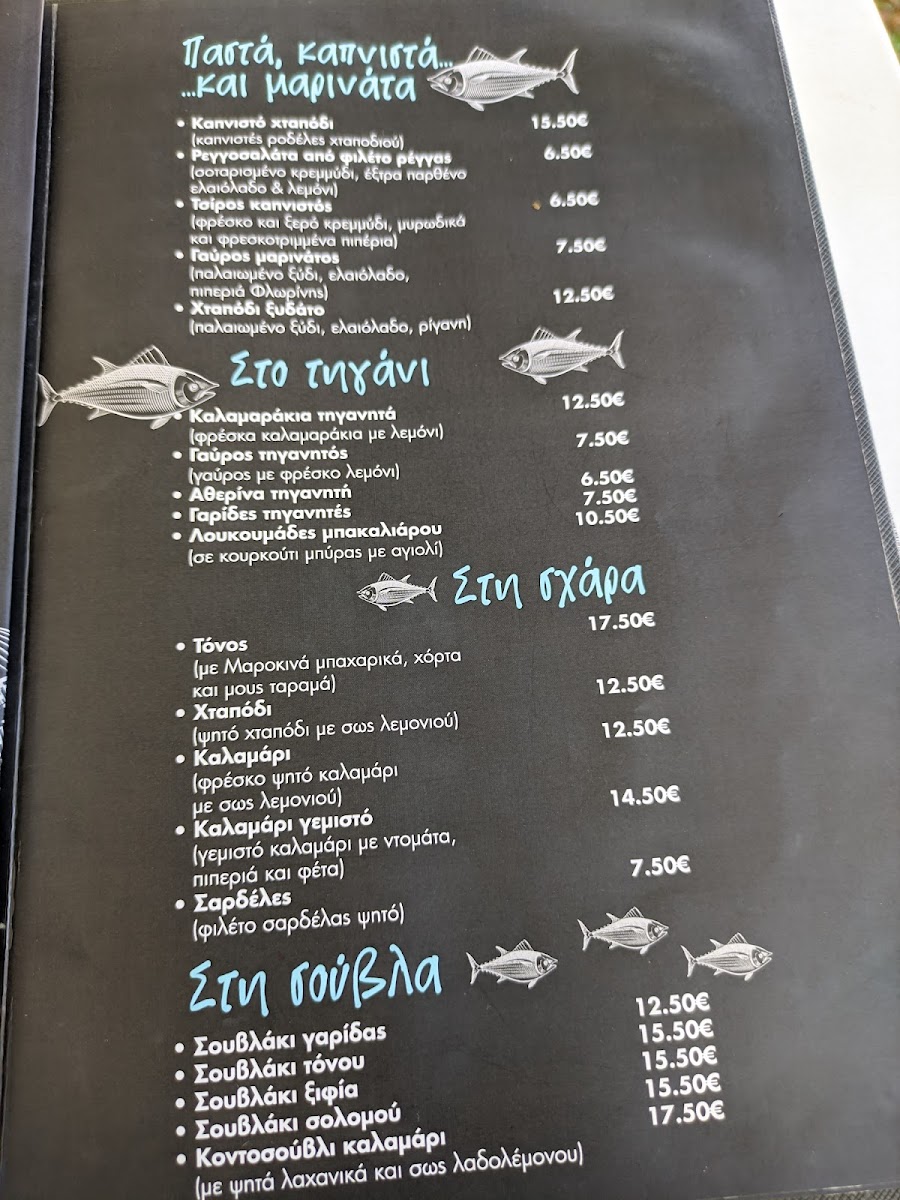 Παστά, καπνιστά...
...και μαρινάτα
• Καπνιστό χταπόδι 15.50€
(καπνιστές ροδέλες χταποδιού)
• Ρεγγοσαλάτα από φιλέτο ρέγγας 6.50€
(σοταρισμένο κρεμμύδι, έξτρα παρθένο
ελαιόλαδο & λεμόνι)
• Τσίρος καπνιστός 6.50€
(φρέσκο και ξερό κρεμμύδι, μυρωδικά
και φρεσκοτριμμένα πιπέρια)
• Γαύρος μαρινάτος 7.50€
(παλαιωμένο ξύδι, ελαιόλαδο,
πιπεριά Φλωρίνης)
• Χταπόδι ξυδάτο 12.50€
(παλαιωμένο ξύδι, ελαιόλαδο, ρίγανη)
Στο τηγάνι
• Καλαμαράκια τηγανητά 12.50€
(φρέσκα καλαμαράκια με λεμόνι)
• Γαύρος τηγανητός 7.50€
(γαύρος με φρέσκο λεμόνι)
• Αθερίνα τηγανητή 6.50€
• Γαρίδες τηγανητές 7.50€
• Λουκουμάδες μπακαλιάρου 10.50€
(σε κουρκούτι μπύρας με αγιολί)
Στη σχάρα
• Τόνος 17.50€
(με Μαροκινά μπαχαρικά, χόρτα
και μους ταραμά)
• Χταπόδι 12.50€
(ψητό χταπόδι με σως λεμονιού)
• Καλαμάρι 12.50€
(φρέσκο ψητό καλαμάρι
με σως λεμονιού)
• Καλαμάρι γεμιστό 14.50€
(γεμιστό καλαμάρι με ντομάτα,
πιπεριά και φέτα)
• Σαρδέλες 7.50€
(φιλέτο σαρδέλας ψητό)
Στη σούβλα
• Σουβλάκι γαρίδας 12.50€
• Σουβλάκι τόνου 15.50€
• Σουβλάκι ξιφία 15.50€
• Σουβλάκι σολομού 15.50€
• Κοντοσούβλι καλαμάρι 17.50€
(με ψητά λαχανικά και σως λαδολέμονου)